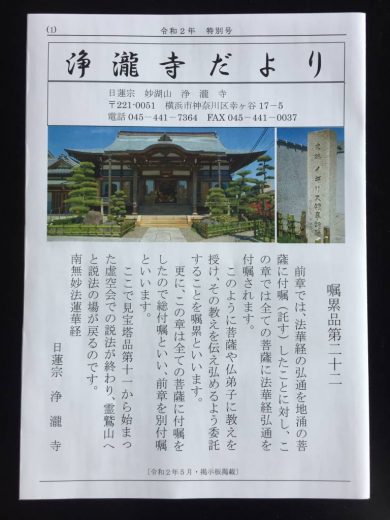 (1)
令和2年　特別号
浄瀧寺だより
日蓮宗　妙湖山　浄　瀧　寺
〒221-0051　横浜市神奈川区幸ヶ谷17－5
電話 045－441－7364　FAX 045－441－0037
史跡　イギリス領事館跡
嘱累品第二十二
前章では、法華経の弘通を地涌の菩
薩に付嘱（託す）したことに対し、こ
の章では全ての菩薩に法華経弘通を
付嘱されます。
このように菩薩や仏弟子に教えを
授け、その教えを伝え弘めるよう委託
することを嘱累といいます。
更に、この章は全ての菩薩に付嘱を
したので総付嘱といい、前章を別付嘱
といいます。
ここで見宝塔品第十一から始まっ
た虚空会での説法が終わり、霊鷲山へ
と説法の場が戻るのです。
南無妙法蓮華経
日蓮宗　浄　瀧　寺
［令和2年5月・掲示板掲載］